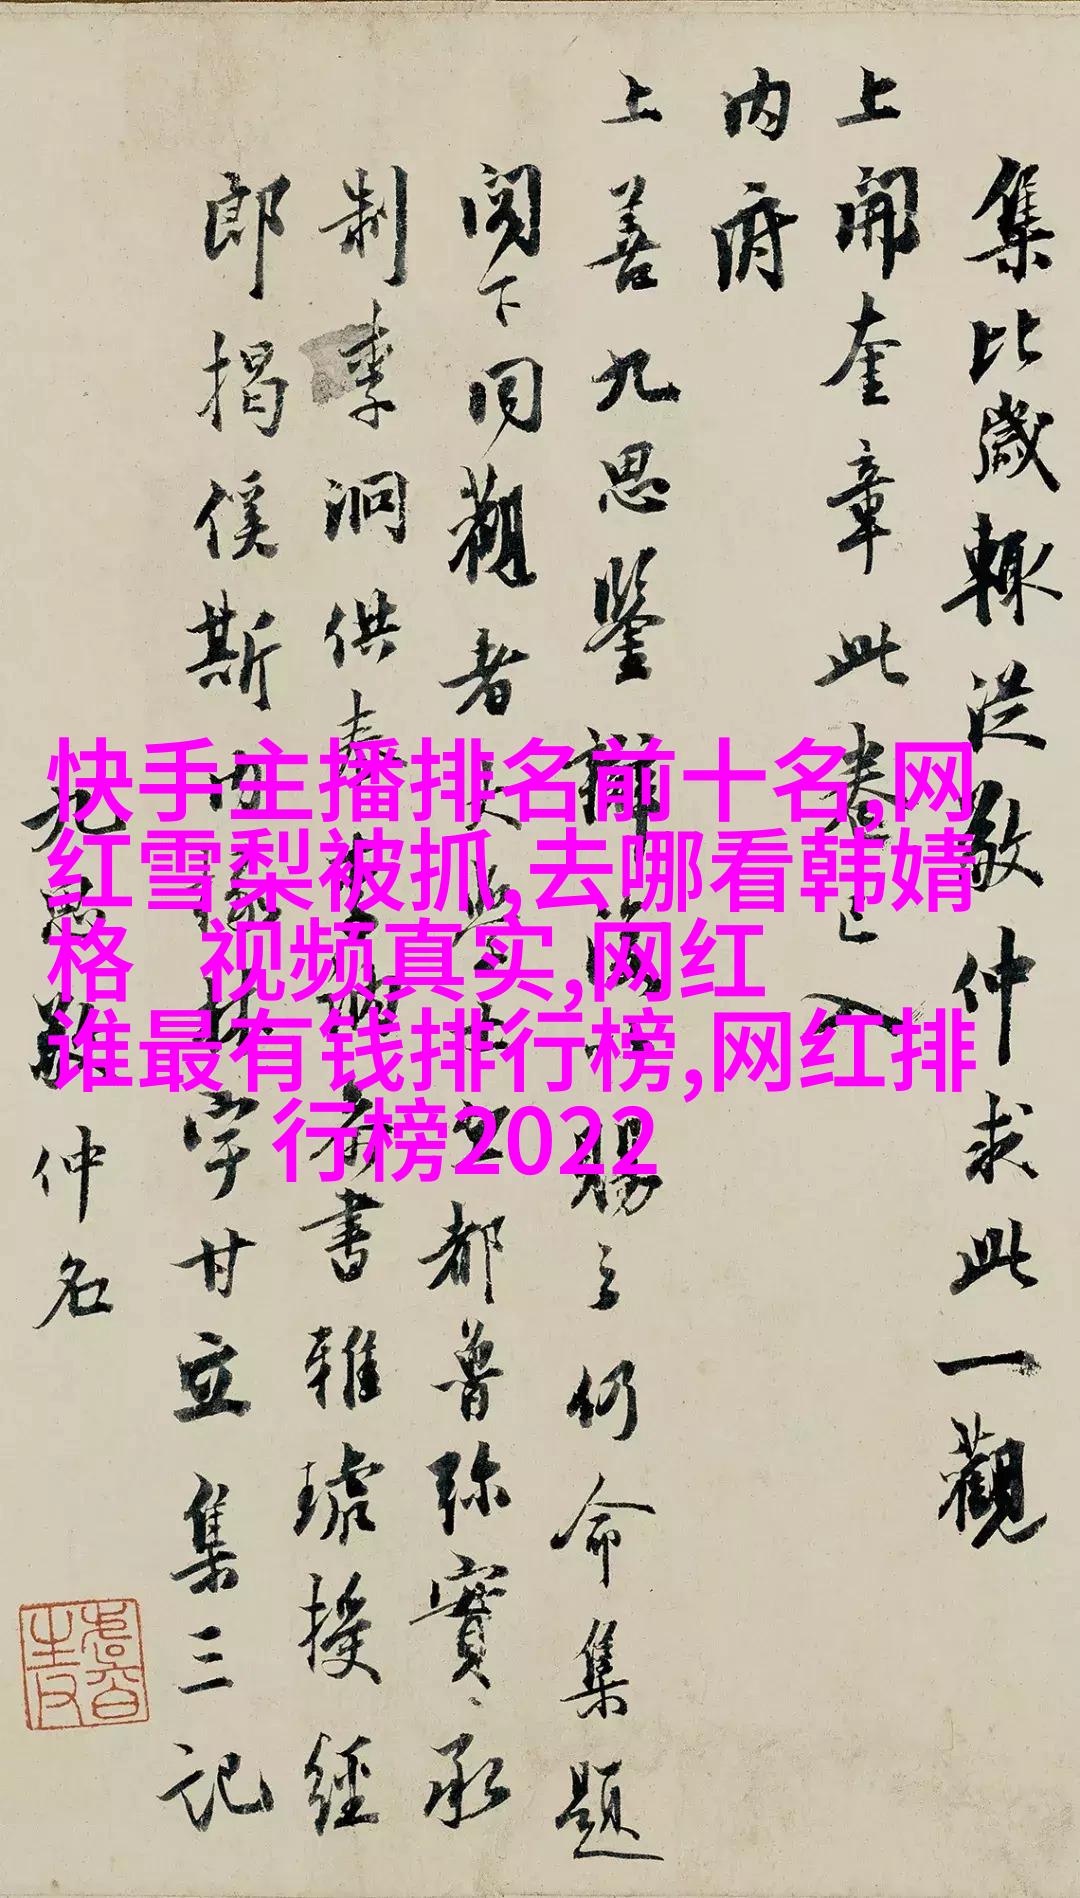 集比歲輒從敬仲求此一觀
上開奎章此卷已入
内府
上善九思鑒辨賜之仍命集題
閣下同觀者大都魯弥實承
制李泂供奉書雅琥授經
郎揭傒斯内林宇甘立集三記
九思敬仲名
快手主播排名前十名,网
红雪梨被抓,去哪看韩婧
格 视频真实,网红
谁最有钱排行榜,网红排
行榜2022